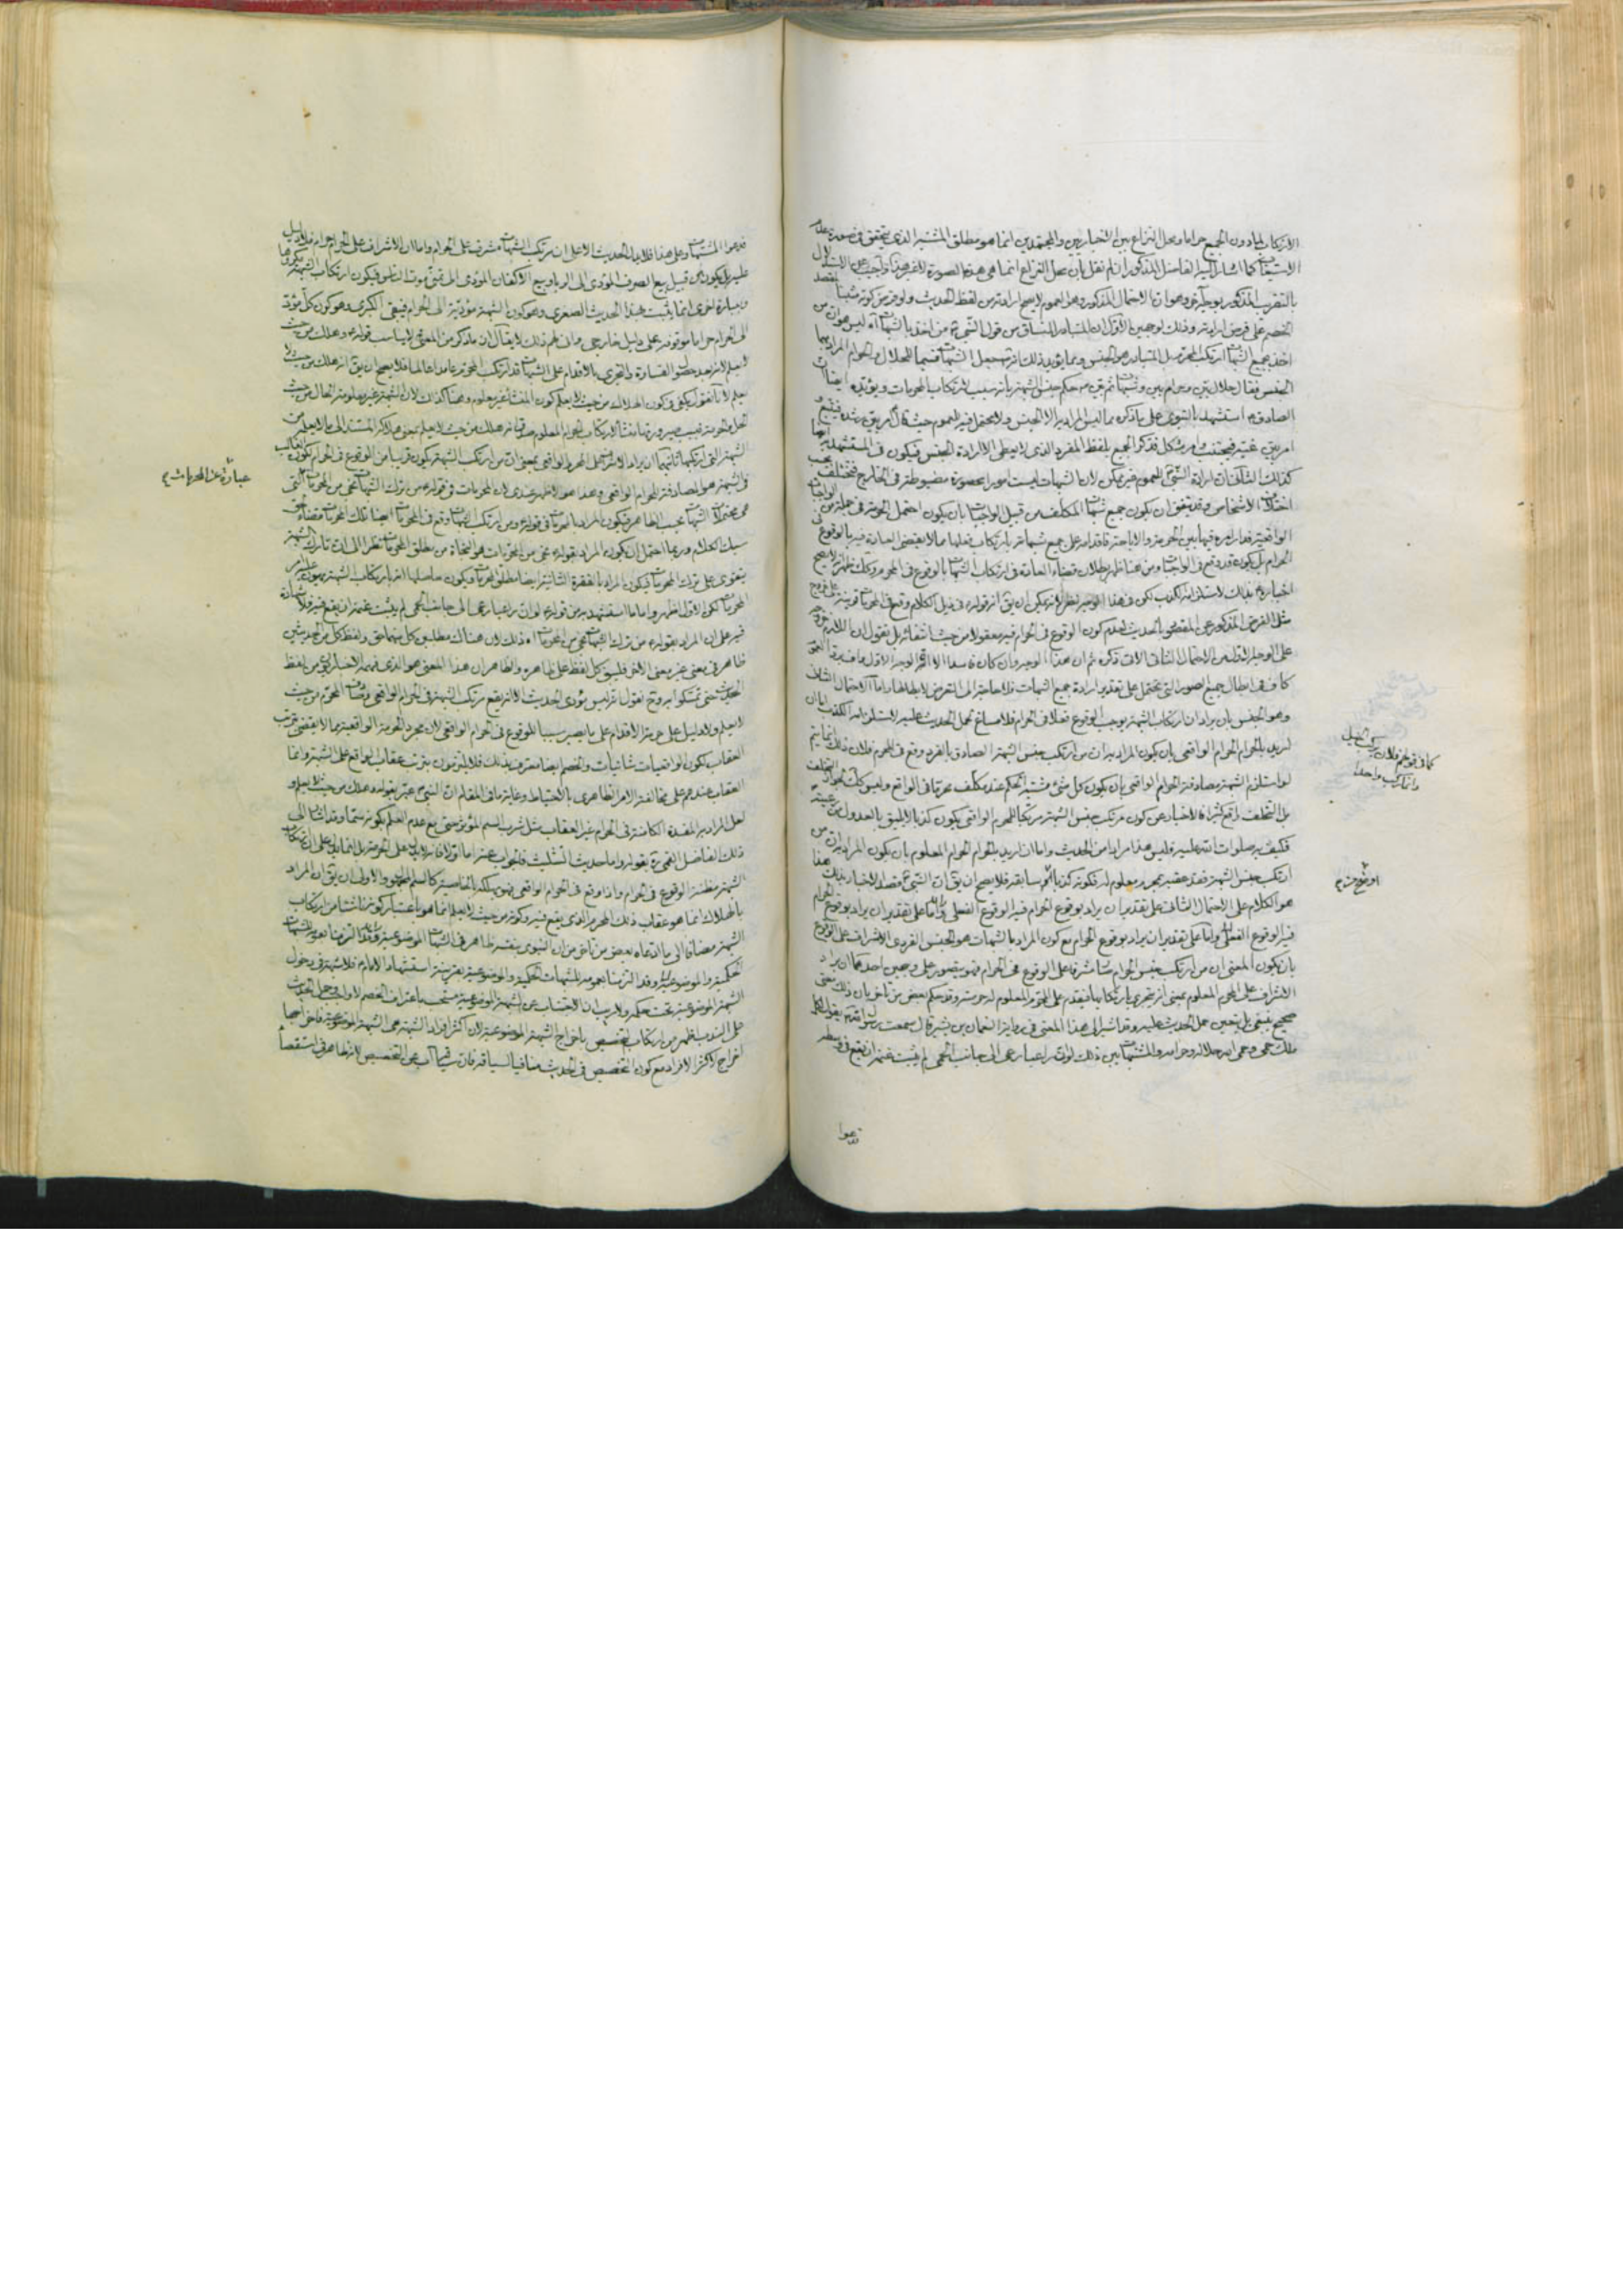 الارتكاب لها دون الجميع حراما ومحل النزاع بين الاخباريين والمجتهدين انما هو مطلق المشتبه الذي يتحقق في صورة عدم
الاستيعاب كما اشار اليه الفاضل المذكور ان لم نقل بان محل النزاع انما هي هذه الصورة
بالتقريب المذكور بوجه آخر وهو ان الاحتمال المذكور وهو العموم لا يصح ارادته من لفظ الحديث ولو فرض كونه مثبتا لمقصد
الخصم على فرض ارادته وذلك لوجهين الاول ان المتبادر المنساق من قول النبي من اخذ بالشبهات آه ليس هو ان من
اخذ بجميع الشبهات ارتكب المحرم بل المتبادر هو الجنس ومما يؤيد ذلك انه جعل الشبهات قسيما للحلال والحرام المراد بهما
الجنس فقال حلال بين وحرام بين وشبهات ثم بين حكم جنس الشبهة بانه سبب لارتكاب المحرمات ويؤيده ايضا ان
الصادق استشهد بالنبوي على ما ذكره مما ليس المراد به الا الجنس ولا يحتمل فيه العموم حيث قال امر بين رشده فيتبع و
امر بين غيه فيجتنب وامر مشكل فذكر الجميع بلفظ المفرد الذي لا يعطي الا ارادة الجنس فيكون في المستشهد به ايضا
كذلك الثاني ان ارادة النبي العموم غير ممكن لان الشبهات ليست امورا محصورة مضبوطة في الخارج فتختلف بحسب
اختلاف الاشخاص وقد يتفق ان يكون جميع شبهات المكلف من قبيل الواجبات بان يكون احتمل الحرمة في جملة من الواجبات
الواقعية فدار امره فيها بين الحرمة والاباحة فاقدامه على جميع شبهاته بارتكاب فعلها مما لا يقضي العادة فيه بالوقوع في
الحرام بل يكون قد وقع في الواجبات ومن هنا ظهر بطلان قضاء العادة في ارتكاب الشبهات بالوقوع في المحرم وكذلك ظهر انه لا يصح
اخباره بذلك لاستلزامه الكذب لكن في هذا الوجه نظر لانه يمكن ان يق ان قوله في ذيل الكلام وقع في المحرمات قرينة على خروج
مثل الفرض المذكور عن المقصود بالحديث لعدم كون الوقوع في الحرام فيه معقولا من حيث انتفائه بل نقول ان اللازم
على الوجه الاول من الاحتمال الثاني الاتي ذكره ثم ان هذا الوجه وان كان فاسدا الا ان الوجه الاول
كاف في ابطال جميع الصور التي تحتمل على تقدير ارادة جميع الشبهات فلا حاجة الى التعرض لابطالها واما الاحتمال الثاني
وهو الجنس بان يراد ان ارتكاب الشبهة يوجب الوقوع فعلا في الحرام فلا مساغ لحمل الحديث عليه لاستلزامه الكذب
اريد بالحرام الحرام الواقعي بان يكون المراد به ان من ارتكب جنس الشبهة الصادق بالفرد وقع في المحرم فلان ذلك انما يتم
لو استلزم الشبهة مصادفة الحرام الواقعي بان يكون كل شئ مشتبه الحكم عند مكلف محرما في الواقع وليس كذلك لجواز التخلف
بل التخلف واقع كثيرا فالاخبار عن كون مرتكب جنس الشبهة مرتكبا للحرم الواقعي يكون كذبا لا يليق بالعدول من رعيته
فكيف به صلوات الله عليه فليس هذا مرادا من الحديث واما ان اريد بالحرام الحرام المعلوم بان يكون المراد به ان من
ارتكب جنس الشبهة فقد بمحرم معلوم له فكونه كذبا من سابقه فلا يصح ان يق ان النبي قصد الاخبار بذلك هذا
هو الكلام على الاحتمال الثاني على تقدير ان يراد بوقوع الحرام فيه الوقوع الفعلي واما على تقدير ان يراد بوقوع الحرام
فيه الوقوع الفعلي واما على تقدير ان يراد بوقوع الحرام مع كون المراد بالشبهات هو الجنس الفردي الاشراف على الوقوع
بان يكون المعنى ان من ارتكب جنس الحرام مشرفا على الوقوع في الحرام فهو يتصور على وجهين احدهما ان يراد
الاشراف على المحرم المعلوم بمعنى انه يتجرى بارتكابها فيقدم على المحرم المعلوم له حرمته وقد حكم بعض من تاخر بان ذلك معنى
صحيح ينبغي بل يتعين حمل الحديث عليه وقد اشير الى هذا المعنى في رواية النعمان بن بشير قال سمعت رسول الله يقول لكل
ملك حمى وحمى الله حلاله وحرامه والمشتبهات بين ذلك لو ان راعيا رعى الى جانب الحمى لم يثبت غنمه ان يقع في وسطه
كما في قولهم فلان يركب الخيل
وانما يركب واحدا
اوضح منه م
فدعوا
فدعوا المشتبهات وعلى هذا فلا يدل الحديث الا على ان مرتكب الشبهات مشرف على الحرام واما ان الاشراف على الحرام حرام فلا دليل
عليه بل يكون من قبيل بيع الصرف المؤدي الى الربا وبيع الاكفان المؤدي الى تمني موت الناس فيكون ارتكاب الشبهة مكروها
وبعبارة اخرى انما يثبت بهذا الحديث الصغرى وهو كون الشبهة مؤدية الى الحرام فيبقى الكبرى وهو كون كل مؤد
الى الحرام حراما موقوفة على دليل خارجي وان لم ذلك لا يقال ان ما ذكر من المعنى لا يناسب قوله وهلك من حيث
لا يعلم لانه بعد حصول الجسارة والتجري بالاقدام على الشبهات قد ارتكب المحرم عامدا عالما فلا يصح ان يق انه هلك من حيث لا
يعلم لانا نقول يكفي في كون الهلاك من حيث لا يعلم كون المنشأ غير معلوم وهنا كذلك لان الشبهة غير معلومة الحال من حيث
الحل والحرمة فبسبب صيرورتها منشأ لارتكاب الحرام المعلوم صدق انه هلك من حيث لا يعلم بمعنى هلاكه المستند الى ما لا يعلم من
الشبهة التي ارتكبها ثانيهما ان يراد الاشراف على المحرم الواقعي بمعنى ان من ارتكب الشبهة يكون قريبا من الوقوع في الحرام لكون الغالب
في الشبهة هو المصادفة للحرام الواقعي وهذا هو الاظهر عندي لان المحرمات في قوله من ترك الشبهات نجى من المحرمات التي
هي محتملات الشبهات بحسب الظاهر فيكون المراد بالمحرمات في قوله ومن ارتكب الشبهات وقع في المحرمات ايضا تلك المحرمات قضاء لحق
سبك الكلام وربما احتمل ان يكون المراد بقوله نجى من المحرمات هو النجاة من مطلق المحرمات نظرا الى ان تارك الشبهة
يتقوى على ترك المحرمات فيكون المراد بالفقرة الثانية ايضا مطلق المحرمات ويكون حاصلها انه بارتكاب الشبهة يهون عليه امر
المحرمات لكن الاول اظهر واما ما استشهد به من قوله لو ان راعيا رعى الى جانب الحمى لم يثبت غنمه ان يقع فيه فلا شهادة
فيه على ان المراد بقوله من ترك الشبهات نجى من المحرمات آه ذلك لان هناك مطلبين كل منهما حق ولفظ كل من الحديثين
ظاهر في معنى غير معنى الاخر فليبق كل لفظ على ظاهره والظاهر ان هذا المعنى هو الذي فهمه الاخباريون من لفظ
الحديث حتى تمسكوا به وح نقول انه ليس مؤدى الحديث الا انه يقع مرتكب الشبهة في الحرام الواقعي المحرم من حيث
لا يعلم ولا دليل على حرمة الاقدام على ما يصير سببا للوقوع في الحرام الواقعي لان مجرد الحرمة الواقعية مما لا يقضي بترتب
العقاب لكون الواقعيات شانيات والخصم ايضا معترف بذلك فلا يلتزمون بترتب عقاب الواقع على الشبهة وانما
العقاب عندهم على مخالفة الامر الظاهري بالاحتياط وغاية ما في المقام ان النبي عبر بقوله وهلك من حيث لا يعلم و
لعل المراد به المفسدة الكامنة في الحرام غير العقاب مثل شرب السم المؤثر حتى مع عدم العلم بكونه سما وقد اشار الى
ذلك الفاضل القمي ره بقوله واما حديث التثليث فالجواب عنه اما اولا فانه لا يدل على الحرمة بل انما يدل على ان ارتكاب
الشبهة مظنة الوقوع في الحرام واذا وقع في الحرام الواقعي فهو يهلك بالخاصية كالسم والاولى ان يق ان المراد
بالهلاك انما هو عقاب ذلك المحرم الذي يقع فيه وكونه من حيث لا يعلم انما هو باعتبار كونه ناشئا من ارتكاب
الشبهة مضافا الى ما ادعاه بعض من تاخر من ان النبوي بنفسه ظاهر في الشبهات الموضوعية
الحكمية والموضوعية وقد التزمنا بعمومه للشبهات الحكمية والموضوعية بقرينة استشهاد الامام فلا شبهة في دخول
الشبهة الموضوعية تحت حكمه ولا ريب ان الاجتناب عن الشبهة الموضوعية مستحب باعتراف الخصم
على الندب فلا يلزم من ارتكاب التخصيص باخراج الشبهة الموضوعية لان اكثر افراد الشبهة هي الشبهة الموضوعية فاخراجها
اخراج لاكثر الافراد مع كون التخصيص في الحديث منافيا لسياقه فان سياقه آب عن التخصيص لانه ظاهر في استقصاء
عبارة عن المحرمات م